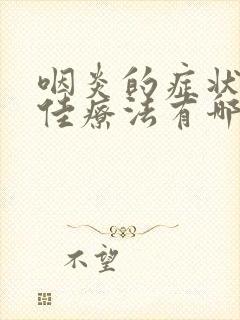 咽炎的症状
佳疗法有哪
不望